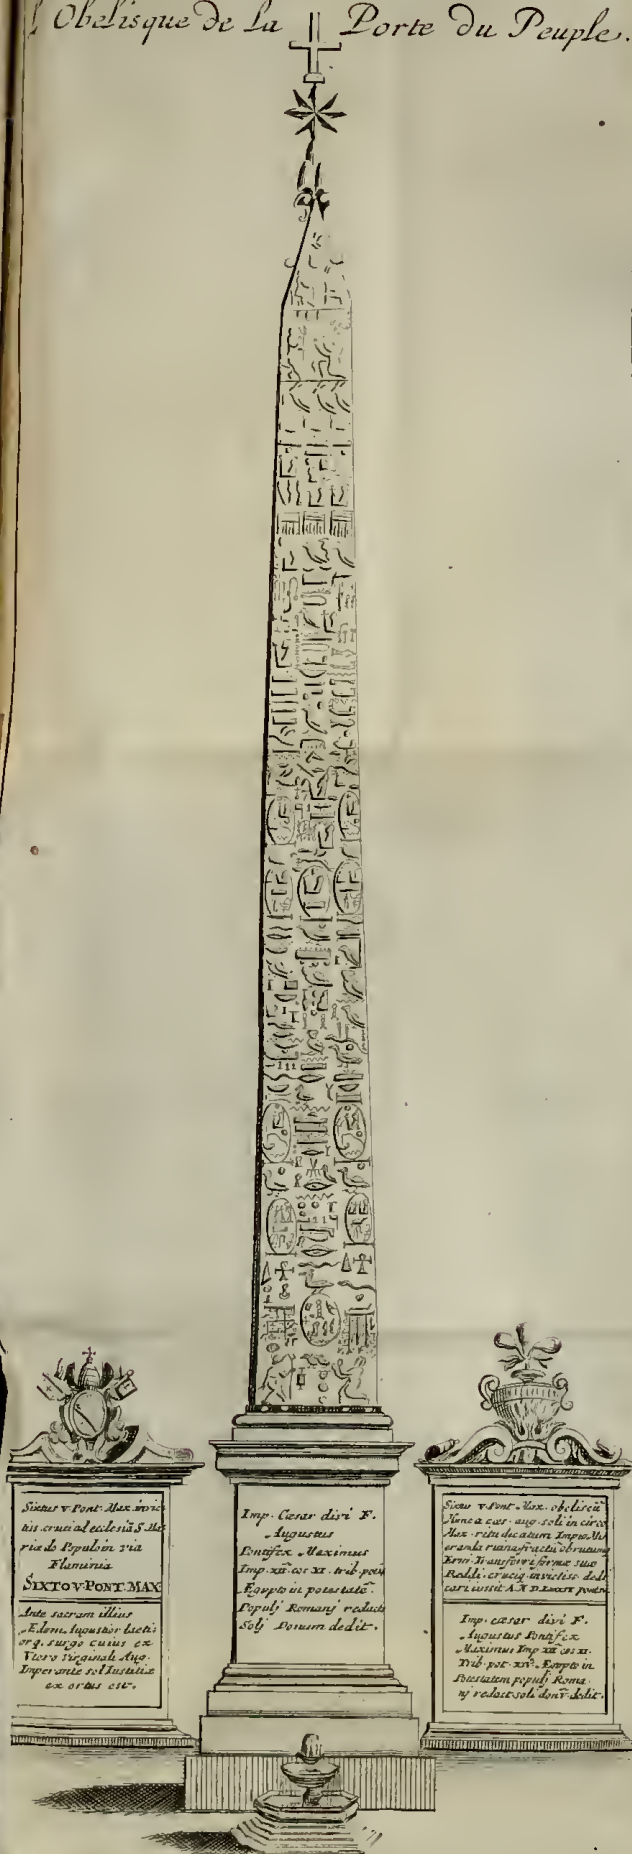 l'Obelisque de la Porte du Peuple.
Sixtus v Pont. Max. invic
tiss. cruci ad eclesiā S. Ma
riæ do Populo in via
Flaminia
SIXTO V. PONT. MAX
Ante sacram illius
Edem. Augustior lætis
orq. surgo cuius ex
Vtero Virginali Aug.
Imperante sol Iustitiæ
ex ortus est.
Imp. Cæsar divi F.
Augustus
Pontifex Maximus
Imp. XII. cos XI. trib. pot.
Egypto in potestatē.
Populj Romanj redacta
Solj Donum dedit.
Sixtus v. Pont. Max. obeliscū
Hunc a cæs. aug. soli in circo
Max. ritu dicatum Impio
ruina fractū obrutumq
Erui Transferri formæ suæ
Reddi. cruciq. invictiss. dedi
cari iussit A. M D LXXXIX pontif.
Imp. cæsar divi F.
Augustus Pontifex
Maximus Imp XII cos XI.
Trib. pot. XIV. Egypto in
Potestatem populj Roma
nj redact. soli donū dedit.